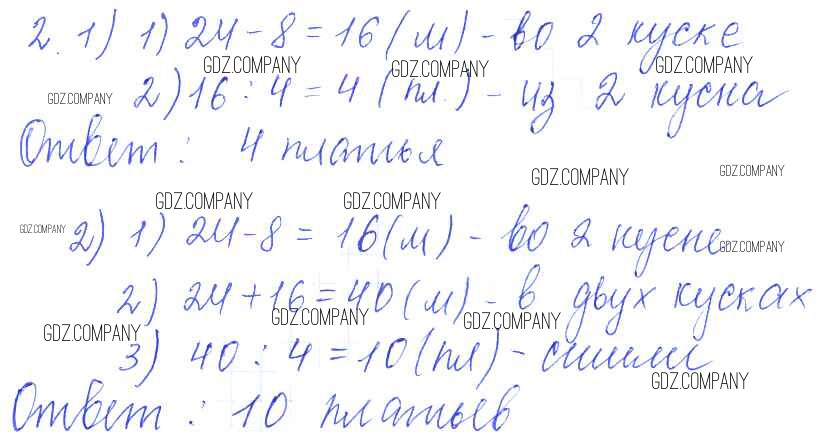 2. 1) 1) 24 - 8 = 16 (м) - во 2 куске
GDZ.COMPANY GDZ.COMPANY GDZ.COMPANY
GDZ.COMPANY
2) 16 : 4 = 4 (пл.) - из 2 куска
Ответ : 4 платья
GDZ.COMPANY GDZ.COMPANY
GDZ.COMPANY GDZ.COMPANY
GDZ.COMPANY GDZ.COMPANY
2) 1) 24 - 8 = 16 (м) - во 2 куске
2) 24 + 16 = 40 (м) - в двух кусках
GDZ.COMPANY GDZ.COMPANY GDZ.COMPANY
3) 40 : 4 = 10 (пл) - сшили
GDZ.COMPANY
Ответ : 10 платьев